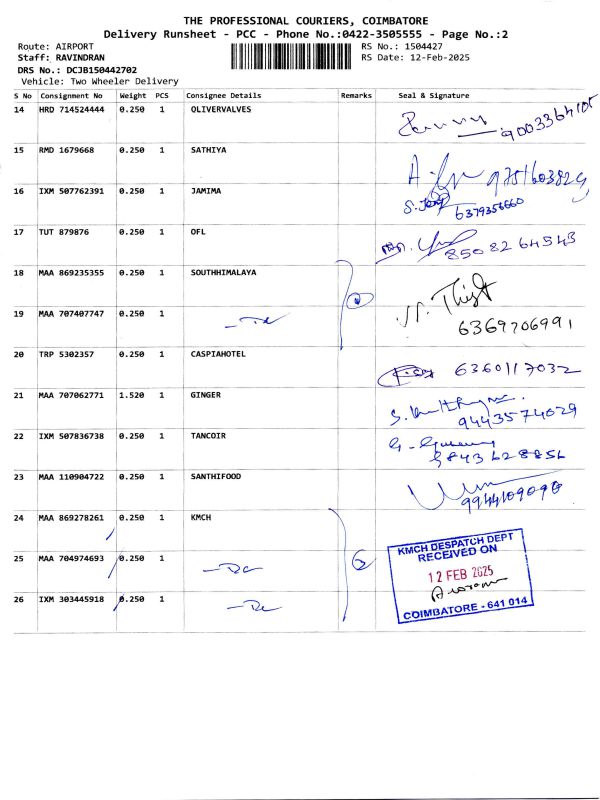 THE PROFESSIONAL COURIERS, COIMBATORE
Delivery Runsheet - PCC - Phone No.:0422-3505555 - Page No.:2
Route: AIRPORT RS No.: 1504427
Staff: RAVINDRAN RS Date: 12-Feb-2025
DRS No.: DCJB150442702
Vehicle: Two Wheeler Delivery
S No Consignment No Weight PCS Consignee Details Remarks Seal & Signature
14 HRD 714524444 0.250 1 OLIVERVALVES
9003364105
15 RMD 1679668 0.250 1 SATHIYA
9751603829
16 IXM 507762391 0.250 1 JAMIMA
6379356660
17 TUT 879876 0.250 1 OFL
8508264543
18 MAA 869235355 0.250 1 SOUTHHIMALAYA
19 MAA 707407747 0.250 1
6369706991
20 TRP 5302357 0.250 1 CASPIAHOTEL 6360117032
21 MAA 707062771 1.520 1 GINGER
9443574029
22 IXM 507836738 0.250 1 TANCOIR
23 MAA 110904722 0.250 1 SANTHIFOOD
9944109090
24 MAA 869278261 0.250 1 KMCH
25 MAA 704974693 0.250 1
26 IXM 303445918 0.250 1
KMCH DESPATCH DEPT
RECEIVED ON
12 FEB 2025
COIMBATORE - 641 014